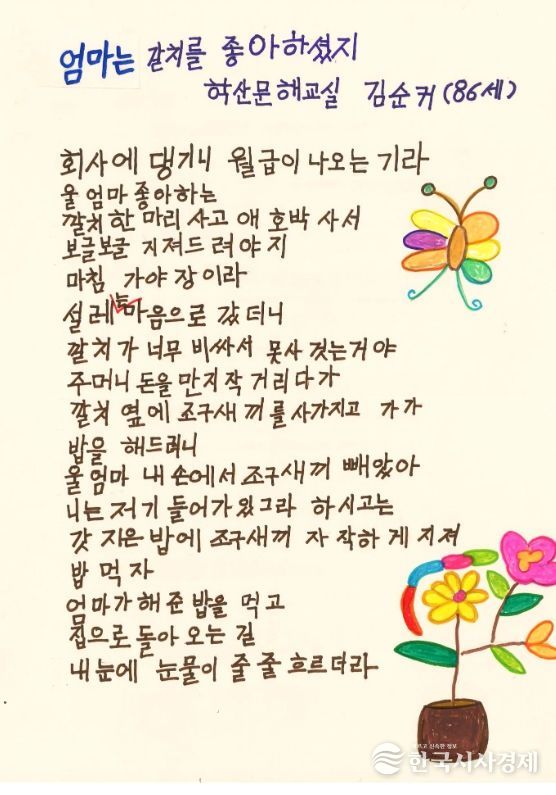 엄마는 갈치를 좋아하셨지
학산문해교실 김순커(86세)
회사에 댕기니 월급이 나오는 기라
울 엄마 좋아하는
깔치 한 마리 사고 애 호박 사서
보글보글 지져드려야지
마침 가야장이라
설레는 마음으로 갔더니
깔치가 너무 비싸서 못사 것는거야
주머니 돈을 만지작 거리다가
깔쳐 옆에 조구새끼를 사가지고 가가
밥을 해드려니
울엄마 내 손에서 조구새끼 빼았아
니는 저기 들어가있그라 하시고는
갓 지은 밥에 조구새끼 자작하게 지져
밥 먹자
엄마가 해준 밥을 먹고
집으로 돌아 오는 길
내 눈에 눈물이 줄 줄 흐르더라
빠르고 신속한 정보
한국시사경제